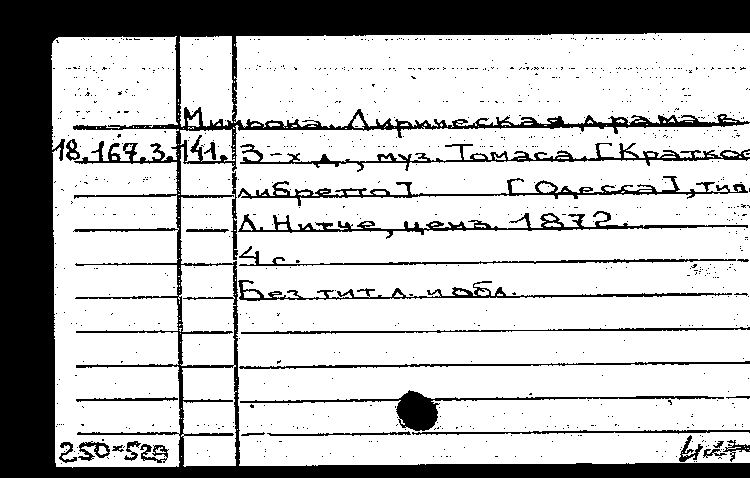 Миньона. Лирическая драма в
18.167.3.141. 3-х д., муз. Томаса. [Краткое
либретто]. [Одесса], тип.
Л. Нитче, ценз. 1872.
4 с.
Без тит. л. и обл.
250-529